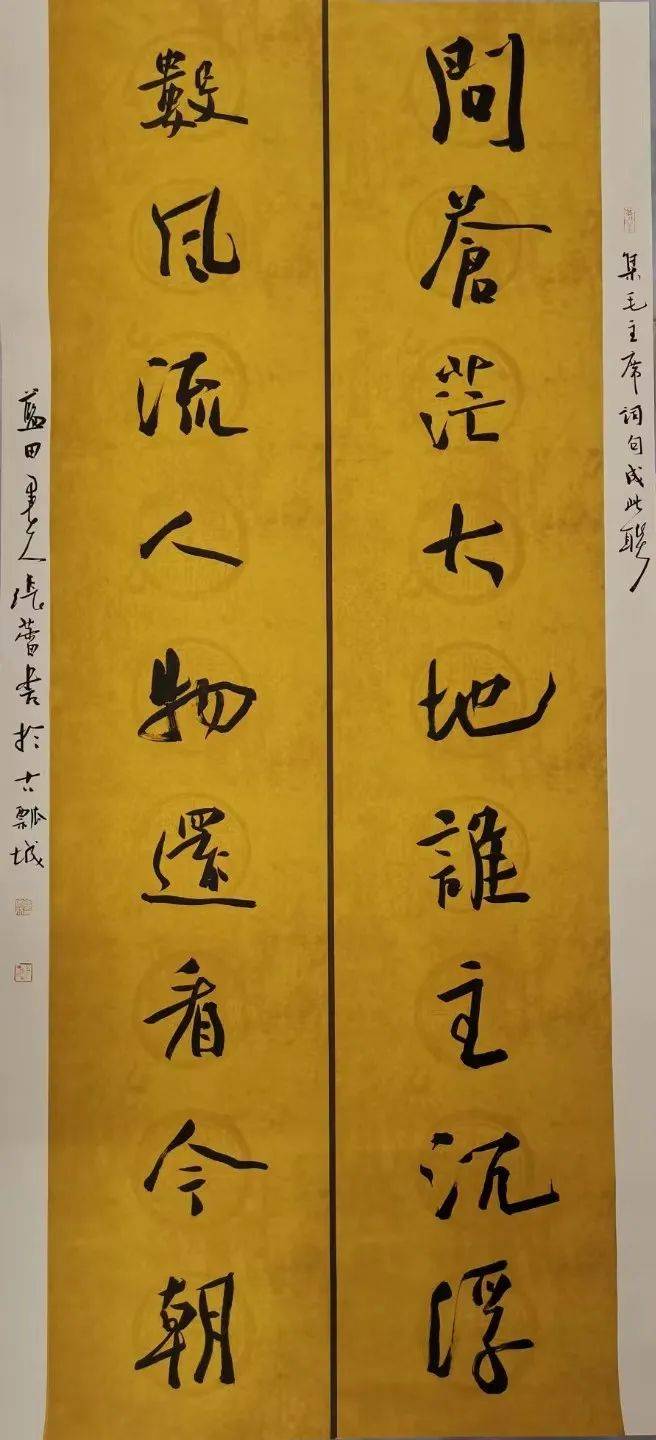 集毛主席词句成此联
問蒼茫大地誰主沉浮
數風流人物還看今朝
藍田 張蕾书於古瓢城